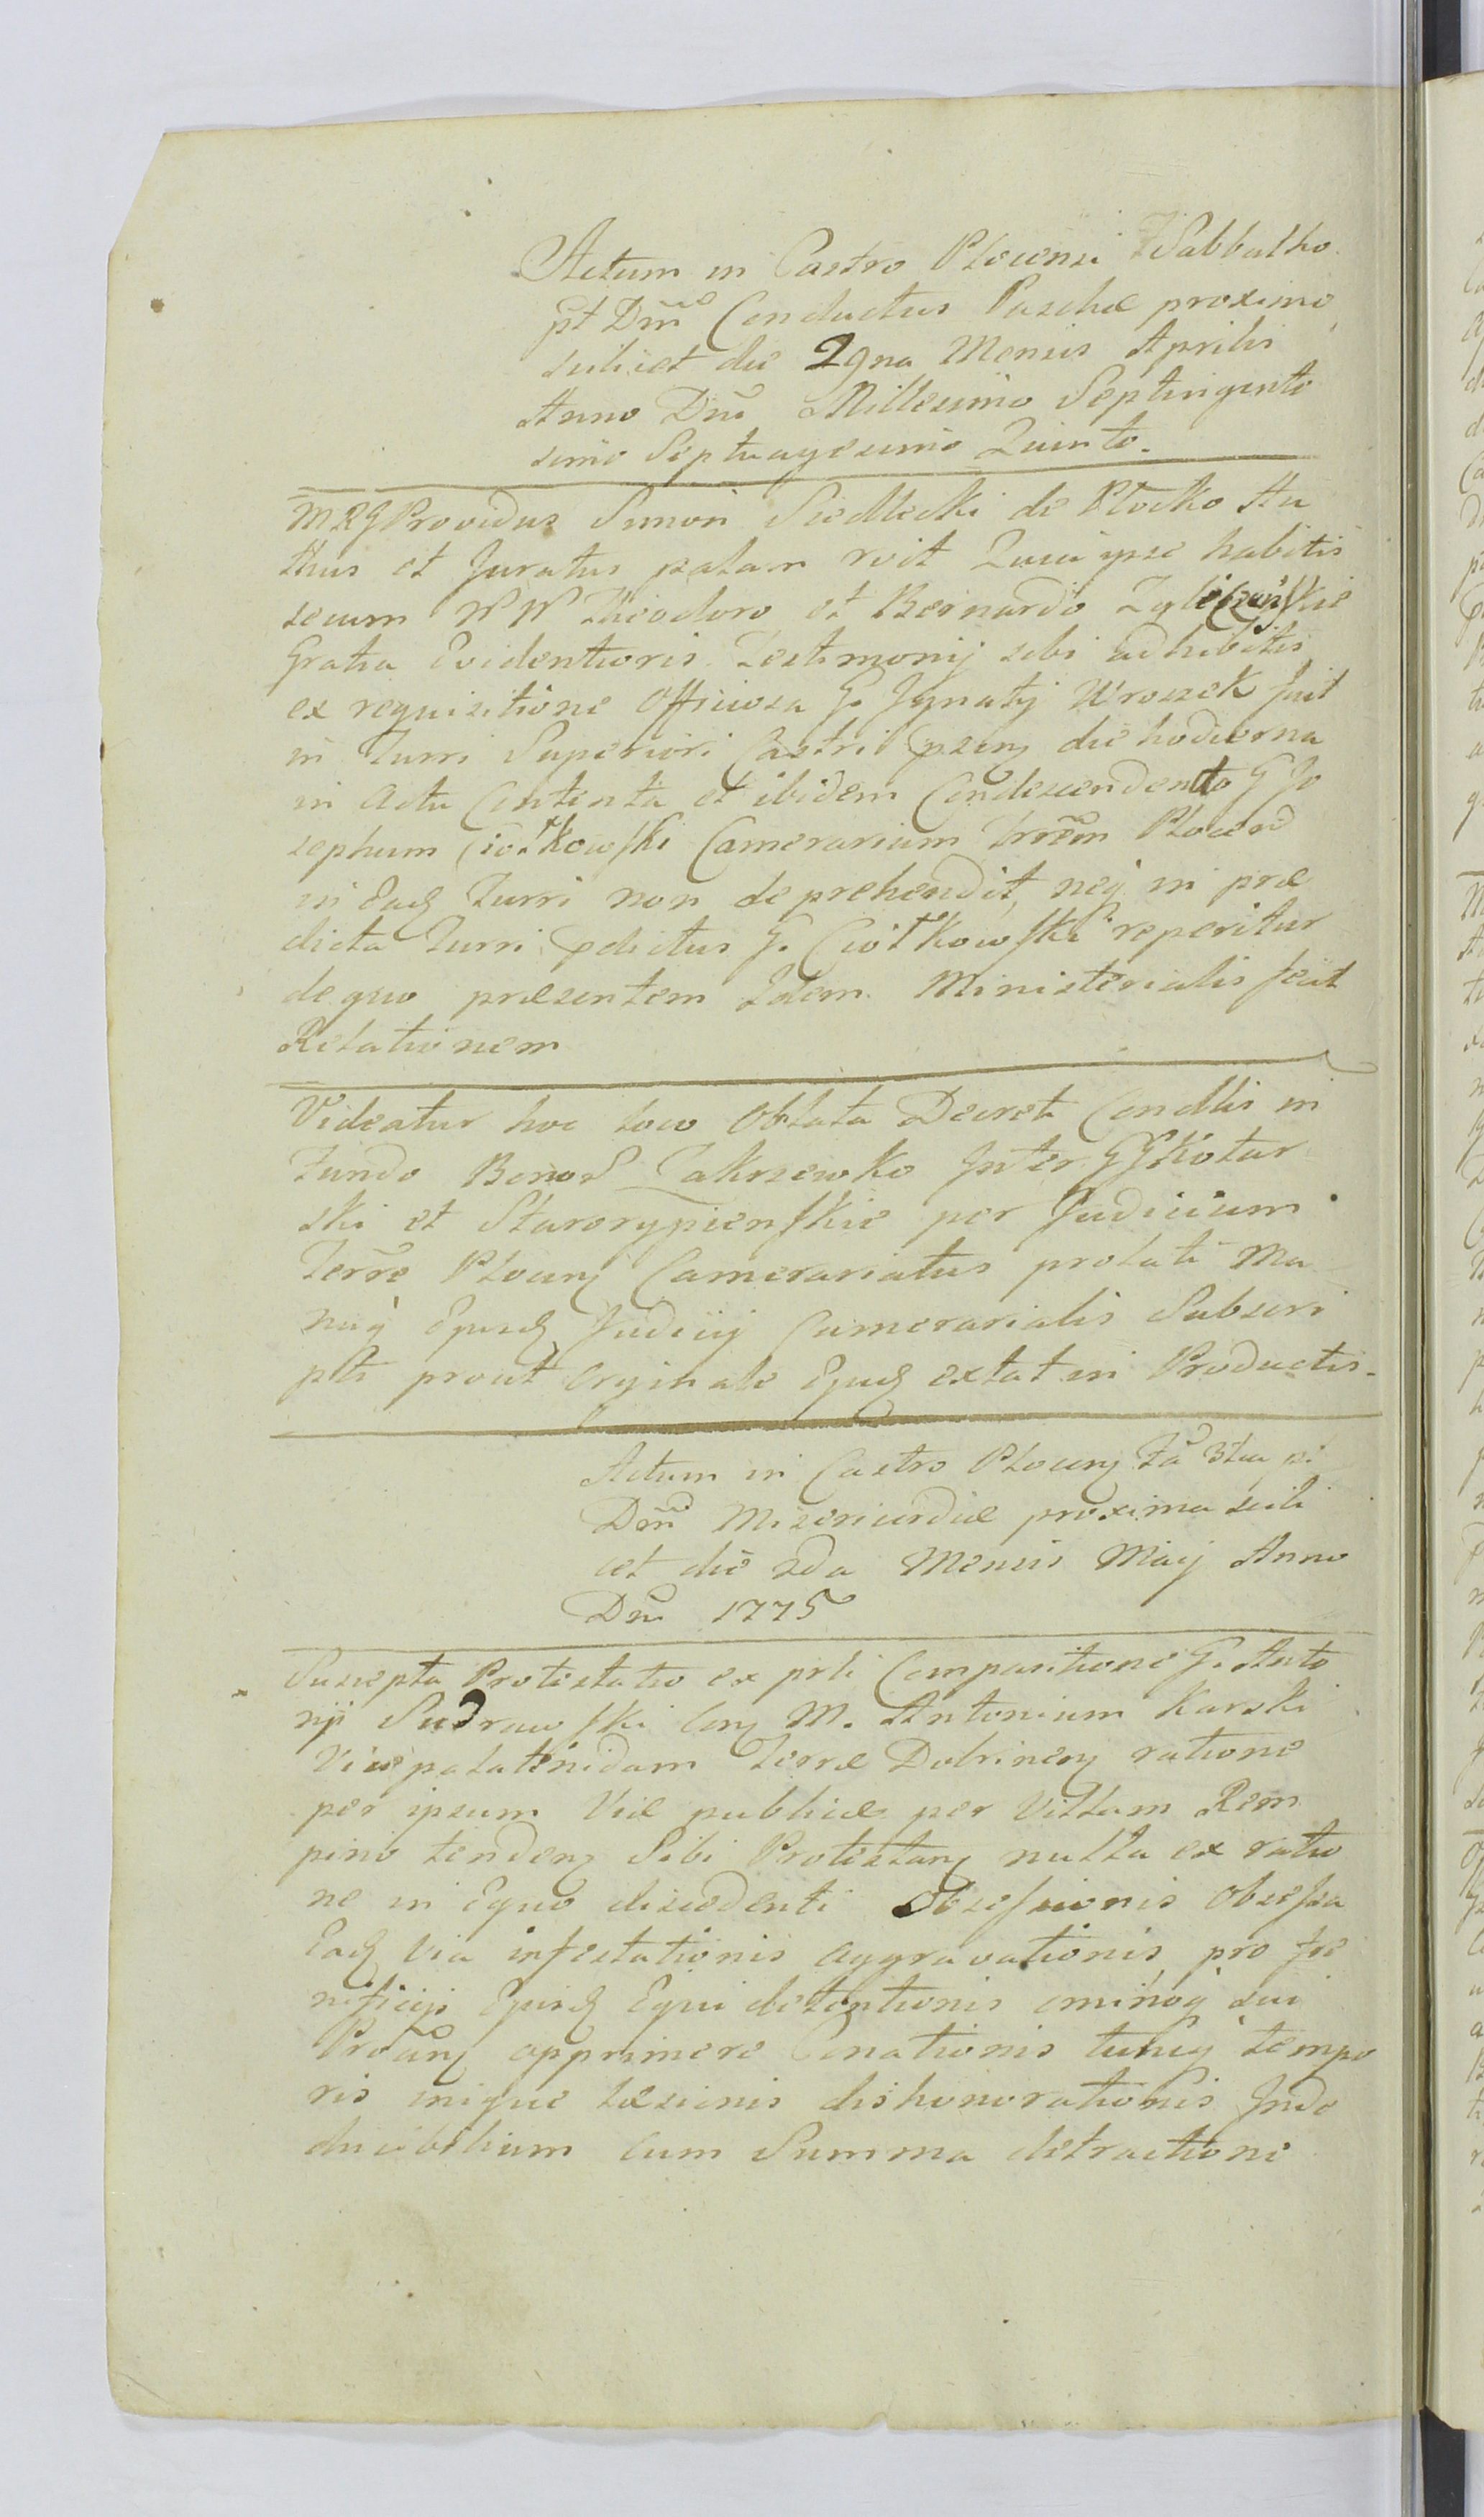 Actum in Castro Plocensi Sabbatho
pt Dm̃ Conductus Paschæ proximo
scilicet die 29na Mensis Aprilis
Anno Dni Millesimo Septingente
simo Septuagesimo Quinto.
MRG Providus Simon Siedlecki de Płocko Au
thus et Juratus palam rvit Quia ipse habitis
secum NN Theodoro et Bernardo
Gratia Evidentioris Testimonij sibi adhibitis
ex requisitione Officiosa G. Jgnatij Wroszek fuit
in Turri Superiori Castri die hodierna
in Actu Contenta et ibidem Condescendento G Jo
sephum Ciołkowski Camerarium Plocen
in Eadq Turri non deprehendit, neq in præ
dicta Turri pdictus G. Ciołkowski reperitur
de quo præsentem Idem Ministerialis fecit
Relationem
Videatur hoc loco Oblata Decreti Condlis in
Fundo Bonor Zakrzewko Inter GG Kotar
ski et Starorypienskie per Judicium
Terrê Plocen Camerariatus prolati Ma
nuq Ejusd Judicij Camerarialis Subscri
pti prout Orginale Ejusd extat in Productis.
Actum in Castro Plocen Fa 3tia pt
Dm̃ Misericordiæ proxima scili
cet die 2da Mensis Maij Anno
Dni 1775
Suscepta Protestatio ex prli Comparitione G. Anto
nij Sudrawski Con M. Antonium Karski
Vicepalatinidam Terræ Dobrinen ratione
per ipsum Viæ publicæ per Villam Rem
pino tenden Sibi Protestan nulla ex ratio
ne in Equo discedenti Obsessionis Obsessa
Eadq Via infestationis aggravationis pro
Ejusd Equi detentionis sui
opprimere Conationis tuncq tempo
ris inique læsionis dishonorationis Inde
ducibilium cum Summa detractione